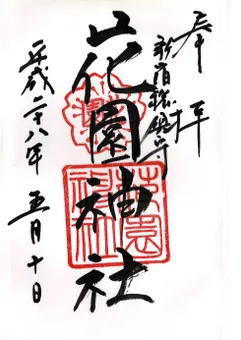 奉拝
新宿総鎮守
花園神社
平成二十八年 五月十日
花園神社